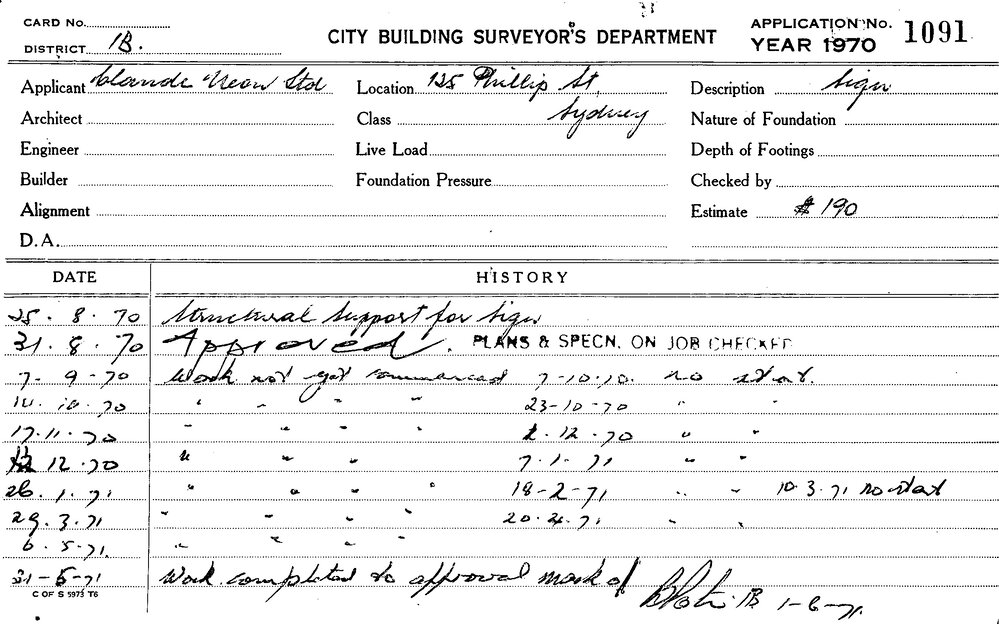 CARD No.
DISTRICT 1B.
CITY BUILDING SURVEYOR'S DEPARTMENT
APPLICATION No. 1091
YEAR 1970
Applicant Claude Neon Ltd Location 125 Phillip St, Description Sign
Architect Class Sydney Nature of Foundation
Engineer Live Load Depth of Footings
Builder Foundation Pressure Checked by
Alignment Estimate $190
D.A.
DATE HISTORY
25.8.70 Structural Support for Sign
31.8.70 Approved. PLANS & SPECN. ON JOB CHECKED
7-9-70 Work not yet commenced 7-10-70. no start.
14.10.70 " " " " 23-10-70 " "
17.11.70 " " " " 1.12.70 " "
12.70 " " " 7-1-71 " "
26.1.71 " " " " 18-2-71 " " 10.3.71 no start
29.3.71 " " " " 20.4.71 " "
6.5.71. " " " "
31-5-71 Work completed to approval mark of
1B 1-6-71.
C OF S 5973 T6